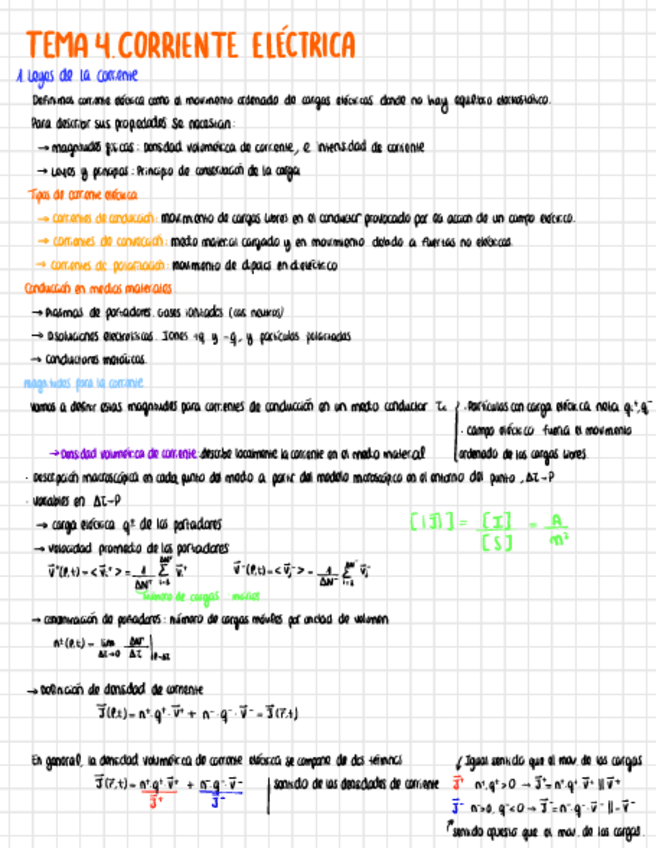 TEMA 4. CORRIENTE ELÉCTRICA
1. Leyes de la corriente
Definimos corriente eléctrica como el movimiento ordenado de cargas eléctricas donde no hay equilibrio electrostático.
Para describir sus propiedades se necesitan:
→ magnitudes físicas: Densidad volumétrica de corriente, e intensidad de corriente
→ Leyes y principios: Principio de conservación de la carga
Tipos de corriente eléctrica
→ corrientes de conducción: movimiento de cargas libres en el conductor provocado por la acción de un campo eléctrico.
→ corrientes de convección: medio material cargado y en movimiento debido a fuerzas no eléctricas.
→ corrientes de polarización: movimiento de dipolos en dieléctrico
Conducción en medios materiales
→ Plasmas de portadores. Gases ionizados (cuasi neutros)
→ Disoluciones electrolíticas. Iones +q y -q, y partículas polarizadas
→ Conductores metálicos.
magnitudes para la corriente
Vamos a definir estas magnitudes para corrientes de conducción en un medio conductor τc { · Partículas con carga eléctrica neta q⁺, q⁻
· campo eléctrico fuerza el movimiento
ordenado de las cargas libres.
→ Densidad volumétrica de corriente: describe localmente la corriente en el medio material
· Descripción macroscópica en cada punto del medio a partir del modelo microscópico en el entorno del punto, Δτ→P
· Variables en Δτ→P
→ carga eléctrica q± de los portadores
[|J⃗|] = [I]/[S] = A/m²
→ velocidad promedio de los portadores
v⃗⁺(P,t) = <v⃗ᵢ⁺> = 1/ΔN⁺ Σ v⃗ᵢ⁺ v⃗⁻(P,t) = <v⃗ⱼ⁻> = 1/ΔN⁻ Σ v⃗ⱼ⁻
número de cargas móviles
→ concentración de portadores: número de cargas móviles por unidad de volumen
n±(P,t) = lim Δτ→0 ΔN±/Δτ |P→Δτ
→ Definición de densidad de corriente
J⃗(P,t) = n⁺·q⁺·v⃗⁺ + n⁻·q⁻·v⃗⁻ = J⃗(r⃗,t)
En general, la densidad volumétrica de corriente eléctrica se compone de dos términos
Igual sentido que el mov. de las cargas
J⃗(r⃗,t) = n⁺·q⁺·v⃗⁺ + n⁻·q⁻·v⃗⁻ | sentido de las densidades de corriente J⃗⁺ n⁺,q⁺>0 → J⃗⁺=n⁺·q⁺·v⃗⁺ || v⃗⁺
J⃗⁺ J⃗⁻ J⃗⁻ n⁻>0, q⁻<0 → J⃗⁻=n⁻·q⁻·v⃗⁻ || -v⃗⁻
sentido opuesto que el mov. de las cargas.